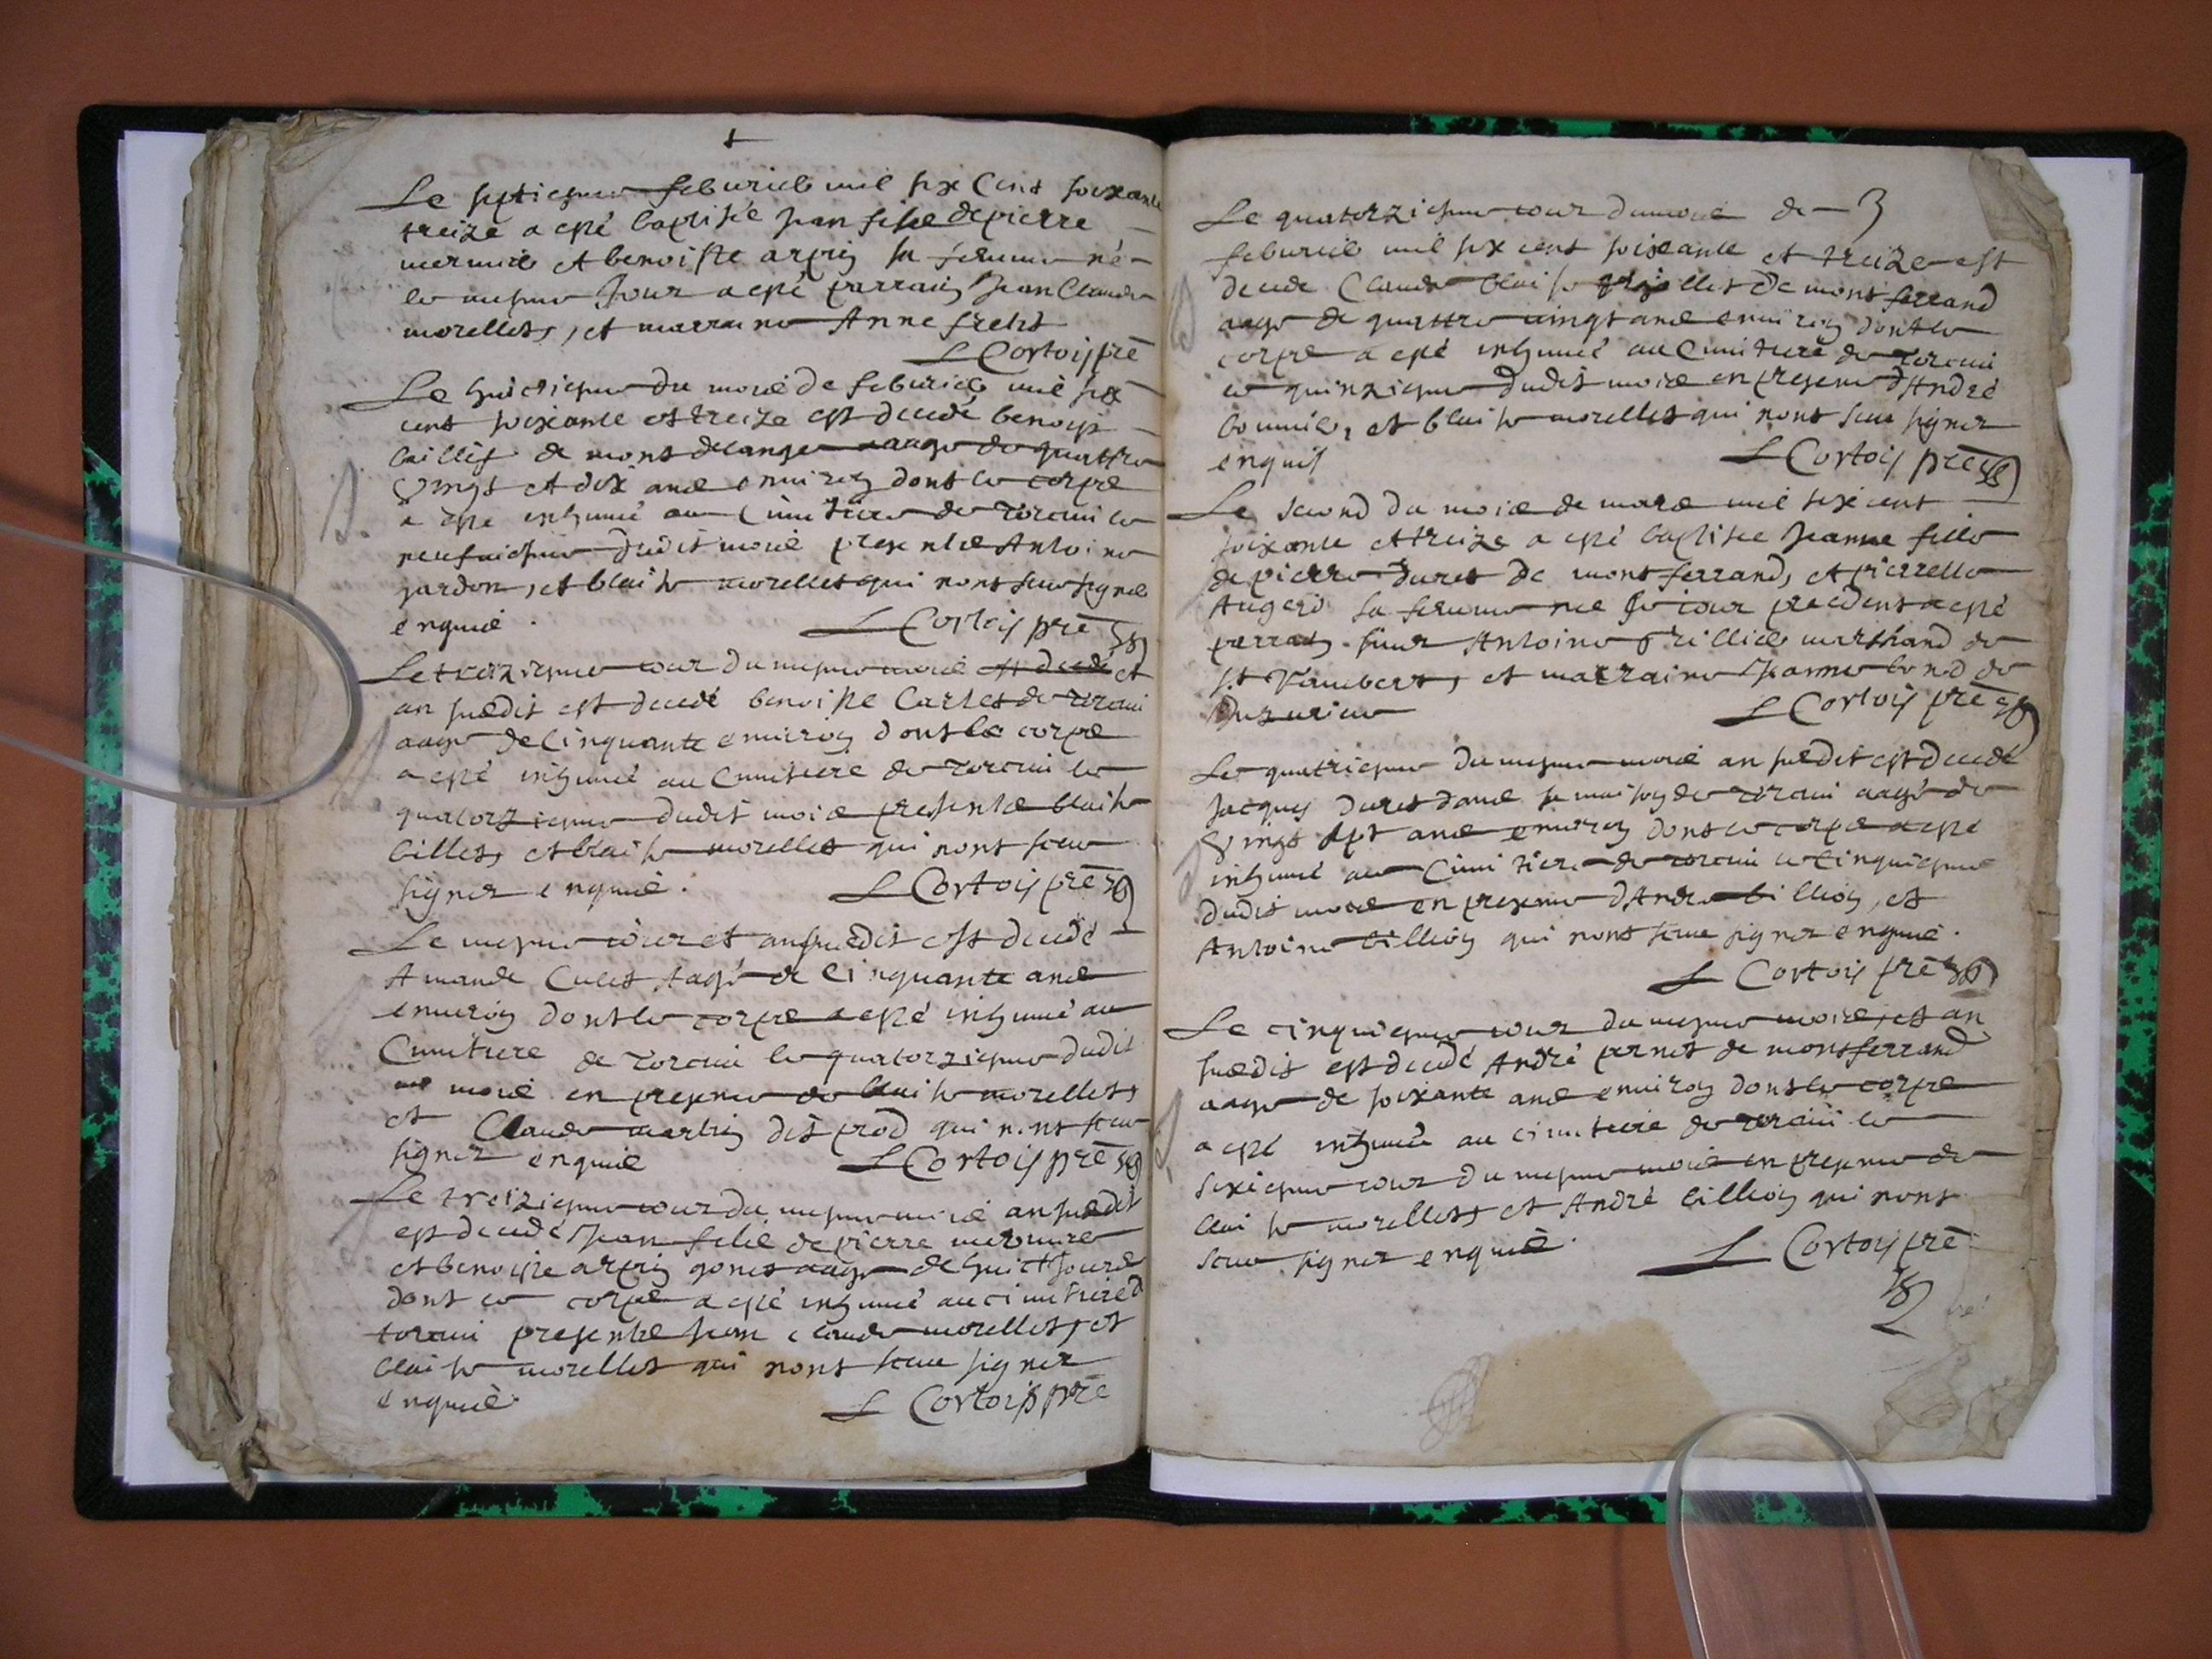 Le septiesme feburier mil six Cens soixante
treize a esté baptisée Jean filie de pierre
mermier et benoiste arpin sa femme né
le mesme Jour a esté parrain Jean Claude
morellet, et marraine Anne
L Cortois pre
Le huictiesme du mois de feburier mil six
cent soixante et treize est decedé benoist
de mont de lange aage de quattre
vingt et dix ans environ dont le corps
a esté inhumé au Cimitiere de torcieu le
neufuiesme dudit mois presents Antoine
jardon, et blaise morellet qui nont sceu signer
enquis. L Cortois pre
Le treiziesme iour du mesme mois est decedé et
an susdit est decedé benoiste Carlet de torcieu
aage de Cinquante environ dont le corps
a esté inhumé au Cimitiere de torcieu le
quatorziesme dudit mois presents blaise
billet, et blaise morellet qui nont sceu
signer enquis. L Cortois pre
Le mesme iour et an susdit est decedé
Amande Culet Aagé de Cinquante ans
environ dont le corps a esté inhumé au
Cimitiere de torcieu le quatorziesme dudit
mois en presence de blaise morellet,
et Claude martin dit prod qui nont sceu
signer enquis L Cortois pre
Le treiziesme iour du mesme mois an susdit
est decedé Jean filié de pierre mermier
et benoiste arpin aage de huict Jours
dont le corps a esté inhumé au cimitiere d
torcieu presents Jean claude morellet, et
blaise morellet qui nont sceu signer
enquis. L Cortois pre
Le quatorziesme iour du mois de 3
feburier mil six cent soixante et treize est
decede Claude blaise de montferrand
aage de quattre vingt ans environ dont le
corps a esté inhumé au Cimitiere de torcieu
le quinziesme dudit mois en presence d'André
et blaise morellet qui nont sceu signer
enquis L Cortois pre
Le second du mois de mars mil six cent
soixante et treize a esté baptisée Jeanne fille
de pierre duret de montferrand, et pierrette
Auger sa femme nee le iour precedent a esté
parrain sieur Antoine marchand de
st Rambert, et marraine Jeanne bond de
L Cortois pre
Le quatriesme du mesme mois an susdit est decedé
Jacques duret dans sa maison de torcieu aagé de
vingt sept ans environ dont le corps a esté
inhumé au Cimitiere de torcieu le Cinquiesme
dudit mois en presence d'Andre billion, et
Antoine billion qui nont sceu signer enquis.
L Cortois pre
Le cinquiesme iour du mesme mois, et an
susdit est decedé André pernet de montferrand
aage de soixante ans environ dont le corps
a esté inhumé au cimitiere de torcieu le
sixiesme iour du mesme mois en presence de
blaise morellet, et André billion qui nont
sceu signer enquis. L Cortois pre